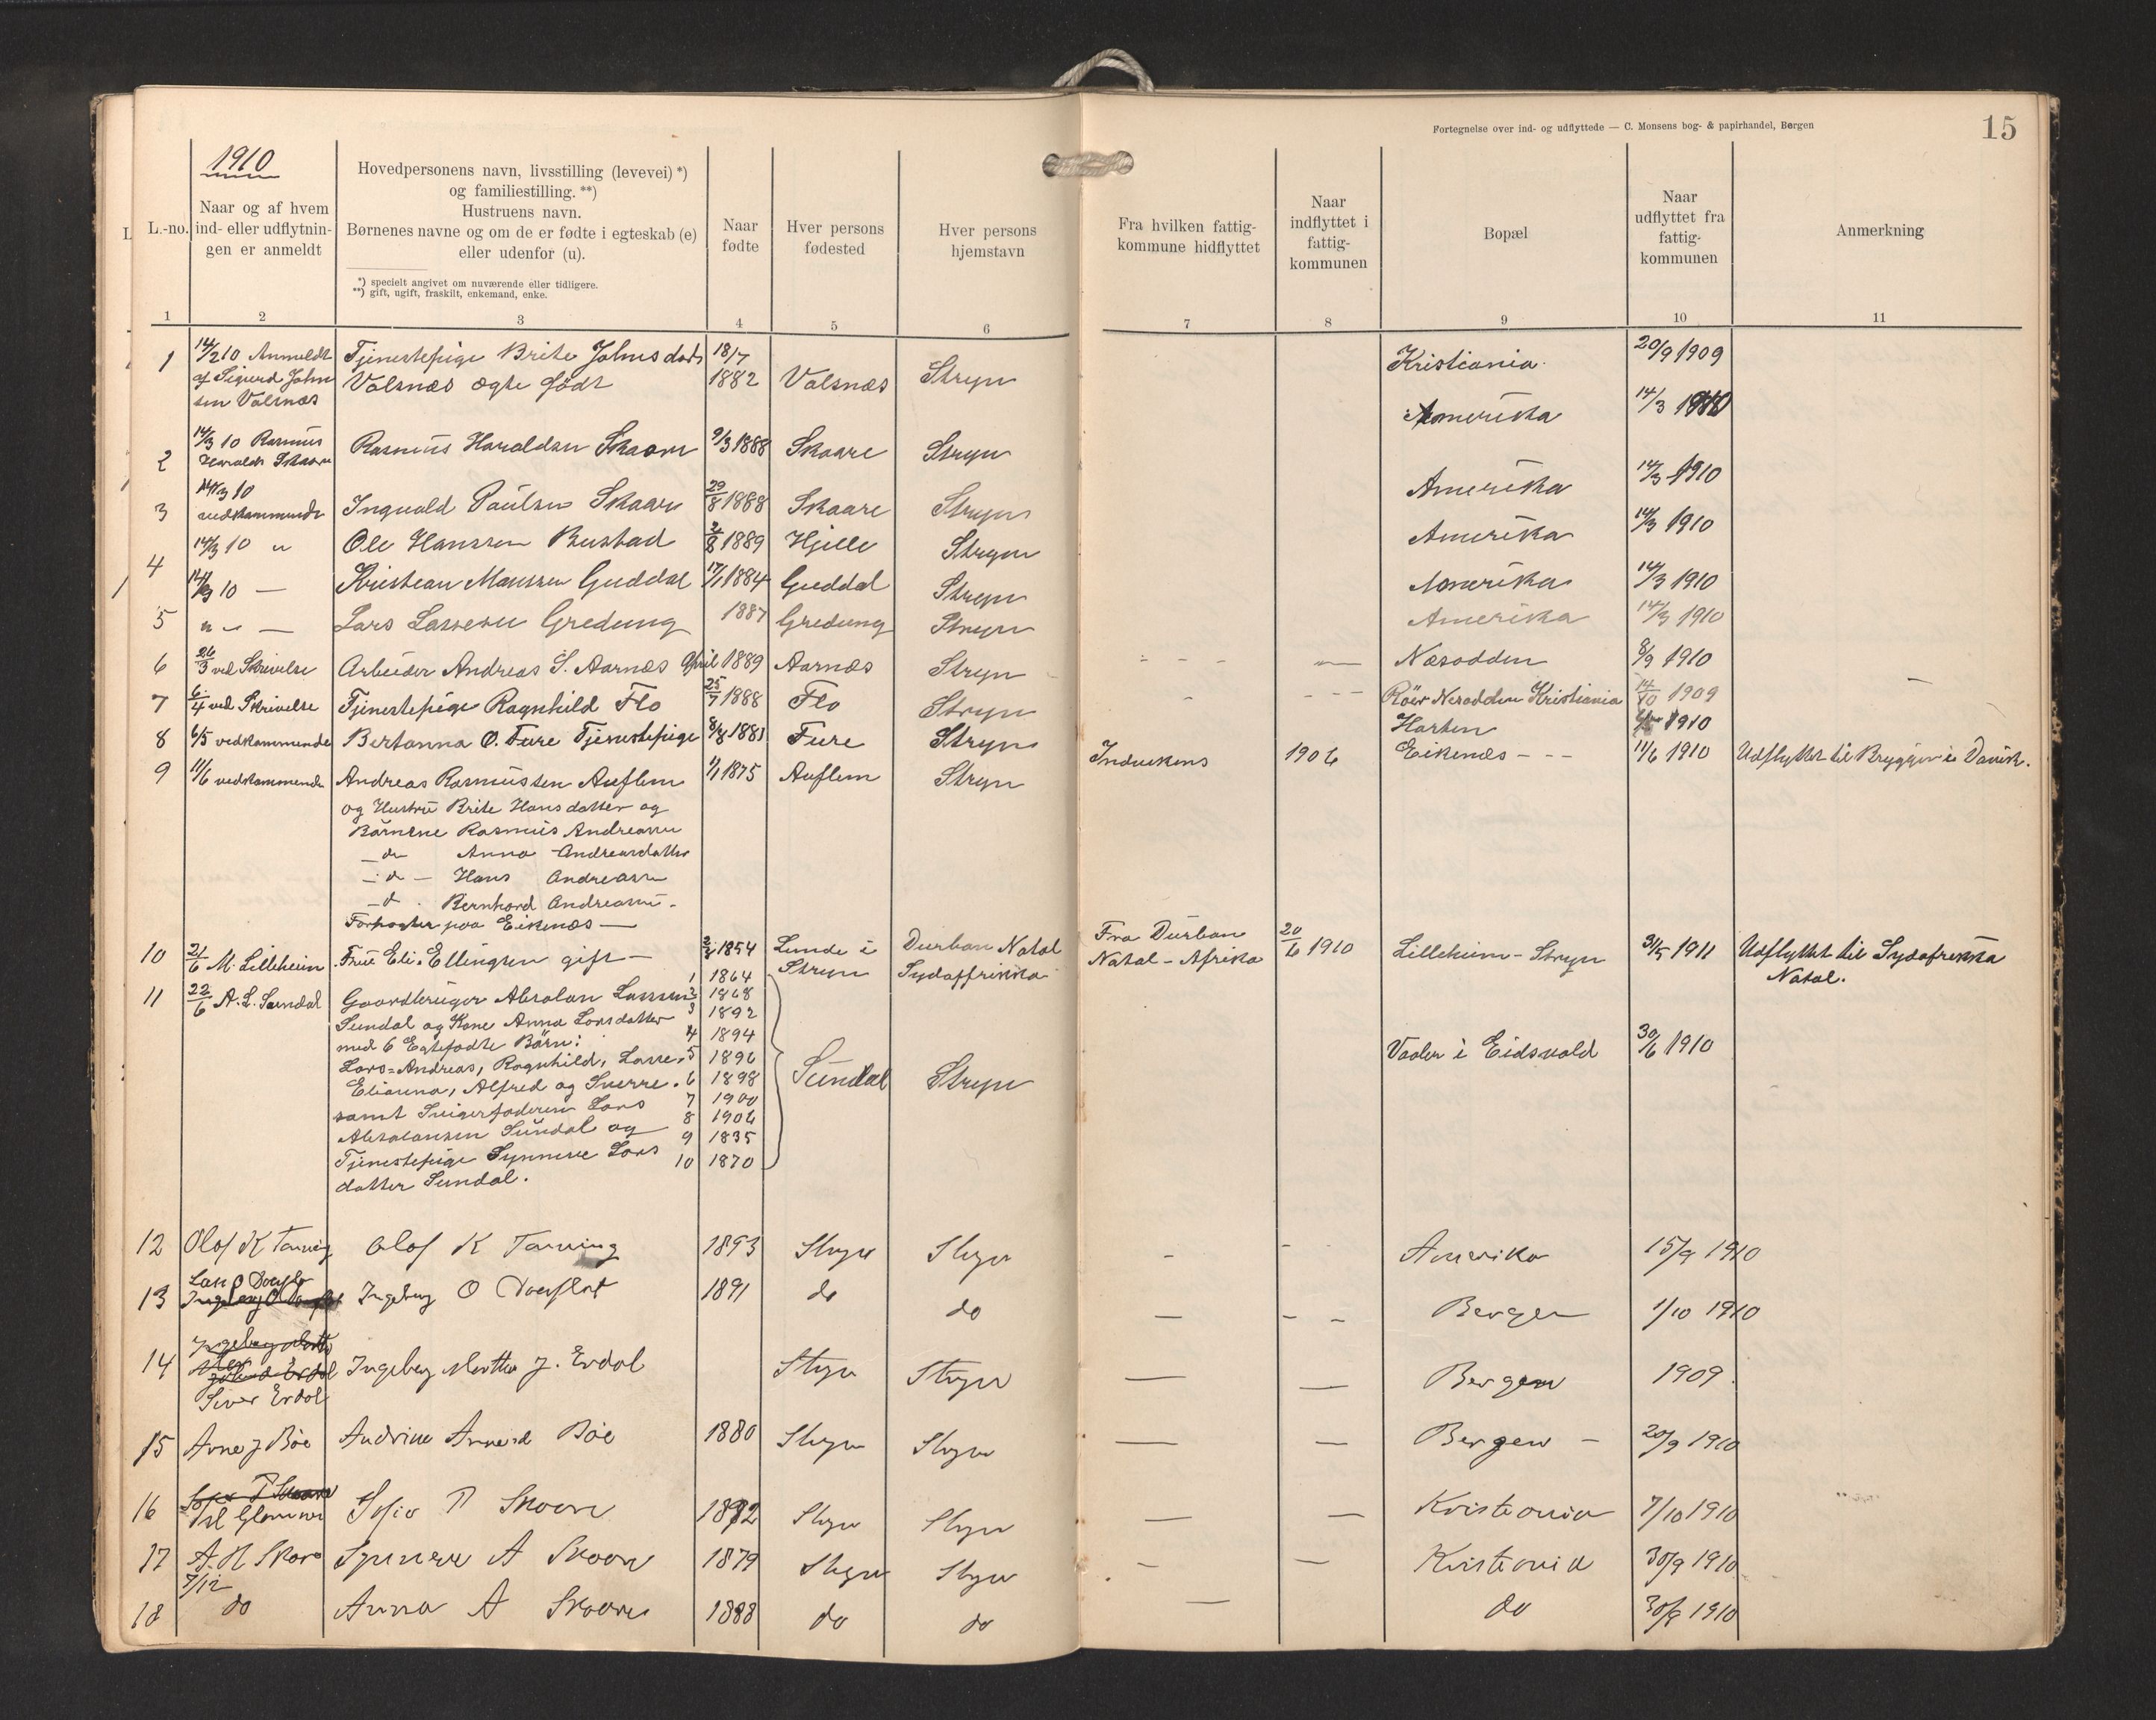 Fortegnelse over ind- og udflyttede — C. Monsens bog- & papirhandel, Bergen
15
1910
L.-no.
Naar og af hvem
ind- eller udflytnin-
gen er anmeldt
Hovedpersonens navn, livsstilling (levevei) *)
og familiestilling. **)
Hustruens navn.
Børnenes navne og om de er fødte i egteskab (e)
eller udenfor (u).
*) specielt angivet om nuværende eller tidligere.
**) gift, ugift, fraskilt, enkemand, enke.
Naar
fødte
Hver persons
fødested
Hver persons
hjemstavn
Fra hvilken fattig-
kommune hidflyttet
Naar
indflyttet i
fattig-
kommunen
Bopæl
Naar
udflyttet fra
fattig-
kommunen
Anmerkning
1 2 3 4 5 6 7 8 9 10 11
1 14/2 10 Anmeldt Tjenestepige Brite Johnsdatr 18/7 Kristiania 20/9 1909
af Sigurd John Valsnæs ægte født 1882 Valsnæs Stryn
sen Valsnæs Amerika 14/3 1910
2 14/3 10 Rasmus Rasmus Haraldsen Skaare 9/3 1888 Skaare Stryn
Haralds Skaare Amerika 14/3 1910
3 14/3 10 Ingvald Paulsen Skaare 29/8 1888 Skaare Stryn
vedkommende Amerika 14/3 1910
4 14/3 10 " Ole Hanssen Bustad 2/8 1889 Hjelle Stryn
14/3 10 — Kristian Monssen Guddal 17/1 1884 Guddal Stryn Amerika 14/3 1910
5 " " — Lars Larssen Gredung 1887 Gredung Stryn Amerika 14/3 1910
6 26/3 ved Skrivelse Arbeider Andreas S. Aarnæs April 1889 Aarnæs Stryn - - - — Næsodden 8/9 1910
7 6/4 ved Skrivelse Tjenestepige Ragnhild Flo 25/7 1888 Flo Stryn - - - - Röer Nesodden Kristiania 14/10 1909 —
8 6/5 vedkommende Bertanna O. Fure Tjenestepige 8/8 1883 Fure Stryn Horten 1910
9 11/6 vedkommende Andreas Rasmussen Auflem 1/1 1875 Auflem Stryn Indvikens 1906 Eikenæs - - - 11/6 1910 Udflyttet til Bryggen i Davik.
og Hustru Brite Hansdatter og
Börnene Rasmus Andreassen
— do Anna Andreasdatter
— do — Hans Andreassen
— do . Bernhard Andreassen -
Forpagter paa Eikenæs —
10 21/6 M. Lilleheim Frue Eli Ellingsen gift — 1854 Lunde i Durban Natal Fra Durban 20/6 1910 Lilleheim - Stryn 31/5 1911 Udflyttet til Sydafrikka
Stryn Sydaffrikka Natal - Afrika Natal.
11 22/6 A. L. Sundal Gaardbruger Absalon Larssen 1 1864
Sundal og Kone Anna Larsdatter 2 1868
med 6 Egtefødte Börn: 3 1892
Lars-Andreas, Ragnhild, Lasse, 4 1894
Elianna, Alfred og Sverre. 5 1896
samt Svigerfaderen Lars 6 1898 Sundal Stryn Vaaler i Eidsvold 30/6 1910
Absalonsen Sundal og 7 1900
Tjenestepige Synneve Lars 8 1906
datter Sundal. 9 1835
10 1870
12 Olof K Tonning Olof K Tonning 1893 Stryn Stryn - - - Amerika 15/9 1910
13 Ingeborg O 1891 do do — - - Bergen 1/10 1910
14 Siver Erdal Ingeborg Marthe J. Erdal Stryn Stryn — — Bergen 1909
15 Arne J Böe Andrine Arnesd Böe 1880 Stryn Stryn — — Bergen - 20/9 1910
16 Sofie P Skaare 1882 Stryn Stryn — — Kristiania 7/10 1910
17 A. H Skare Synneve A Skaare 1879 Stryn Stryn - — Kristiania 30/9 1910
7/12
18 do Anna A Skaare 1888 do do — do 30/9 1910